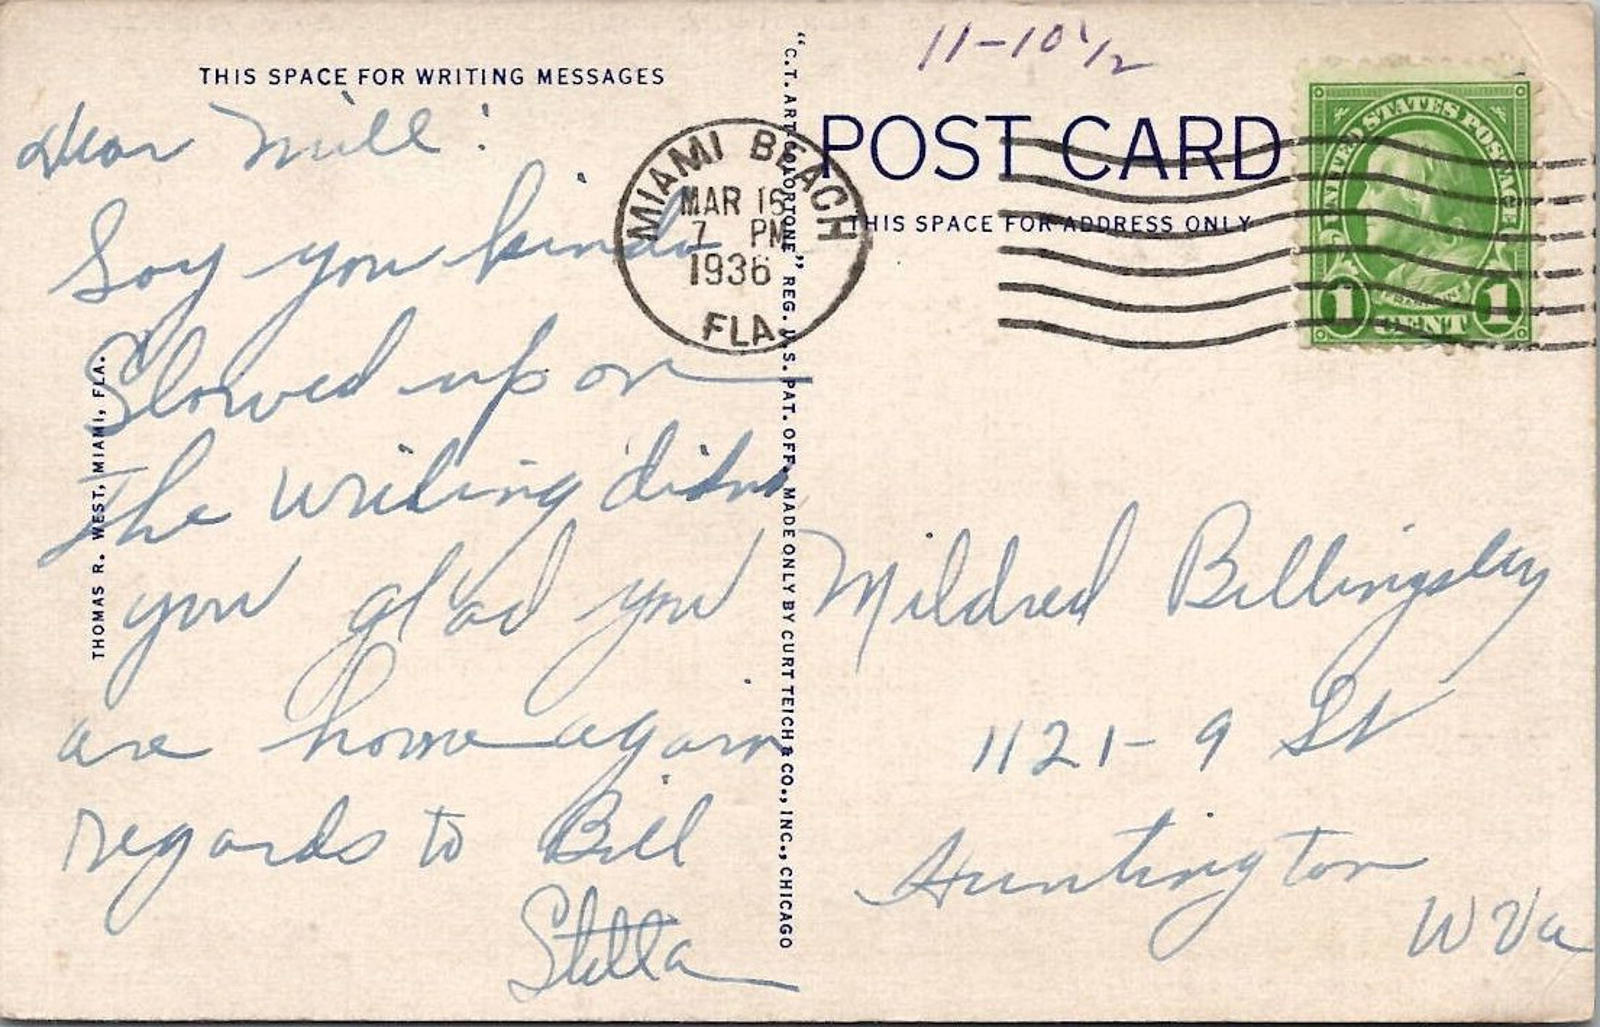 THIS SPACE FOR WRITING MESSAGES
Dear Mill:
Say you kinda
Slowed up on
the writing didn
you glad you
are home again
regards to Bill
Stella
THOMAS R. WEST, MIAMI, FLA.
"C.T. ART-COLORTONE" REG. U.S. PAT. OFF. MADE ONLY BY CURT TEICH & CO., INC., CHICAGO
MIAMI BEACH
MAR 16
7 PM
1936
FLA.
11-10 1/2
POST CARD
THIS SPACE FOR ADDRESS ONLY
UNITED STATES POSTAGE
FRANKLIN
1 CENT 1
Mildred Billingsley
1121-9 St
Huntington
W Va